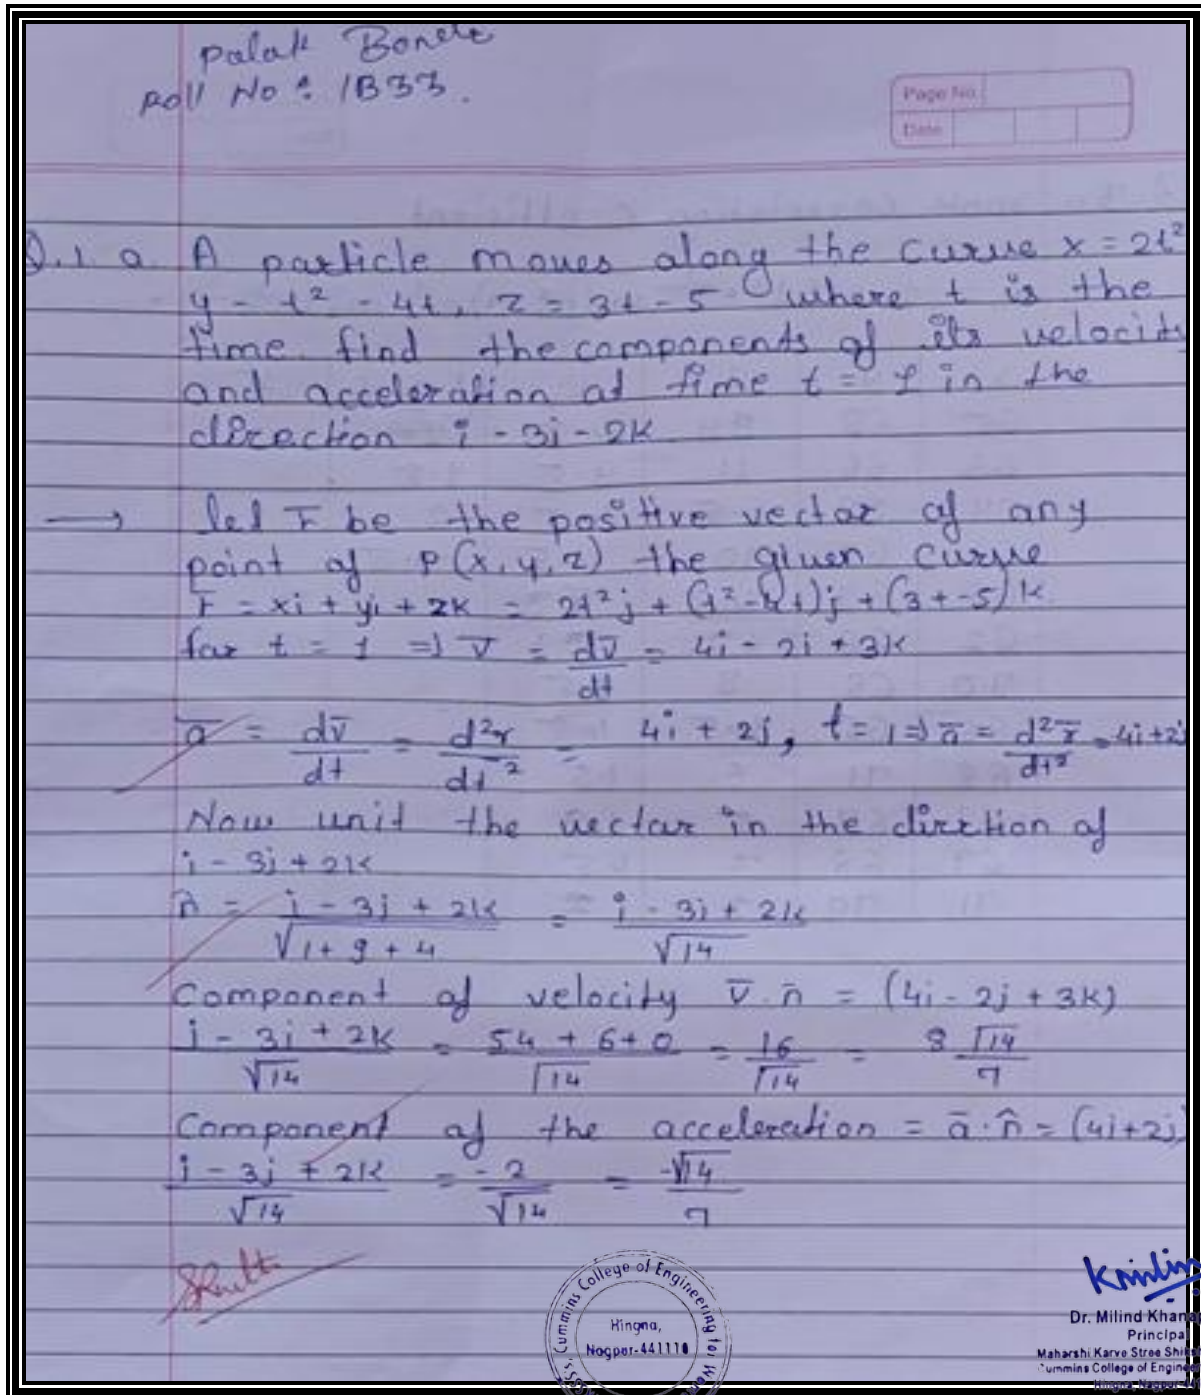 Palak Bonde
Roll No : 1B33.
Page No.
Date
Q.1. a. A particle moves along the curve x = 2t²
y = t² - 4t, z = 3t - 5 where t is the
time. find the components of its velocity
and acceleration at time t = 1 in the
direction i - 3j - 2k
→ let r̄ be the positive vector of any
point of P(x, y, z) the given curve
r̄ = xi + yj + zk = 2t²j + (t² - 4t)j + (3t - 5)k
for t = 1 ⇒ v̄ = dv̄/dt = 4i - 2i + 3k
ā = dv̄/dt = d²r/dt² = 4i + 2j, t = 1 ⇒ ā = d²r̄/dt² = 4i+2j
Now unit the vector in the dirction of
i - 3j + 2k
n̂ = i - 3j + 2k/√1+9+4 = i - 3j + 2k/√14
Component of velocity v̄ . n̄ = (4i - 2j + 3k)
i - 3j + 2k/√14 = 54 + 6 + 0/√14 = 16/√14 = 8 √14/7
Component of the acceleration = ā . n̂ = (4i+2j)
i - 3j + 2k/√14 = -2/√14 = -√14/7
Cummins College of Engineering for Wom
Hingna,
Nagpur-441110
Dr. Milind Khana
Principal
Maharshi Karve Stree Shik
Cummins College of Engineer
Hingna, Nagpur-44